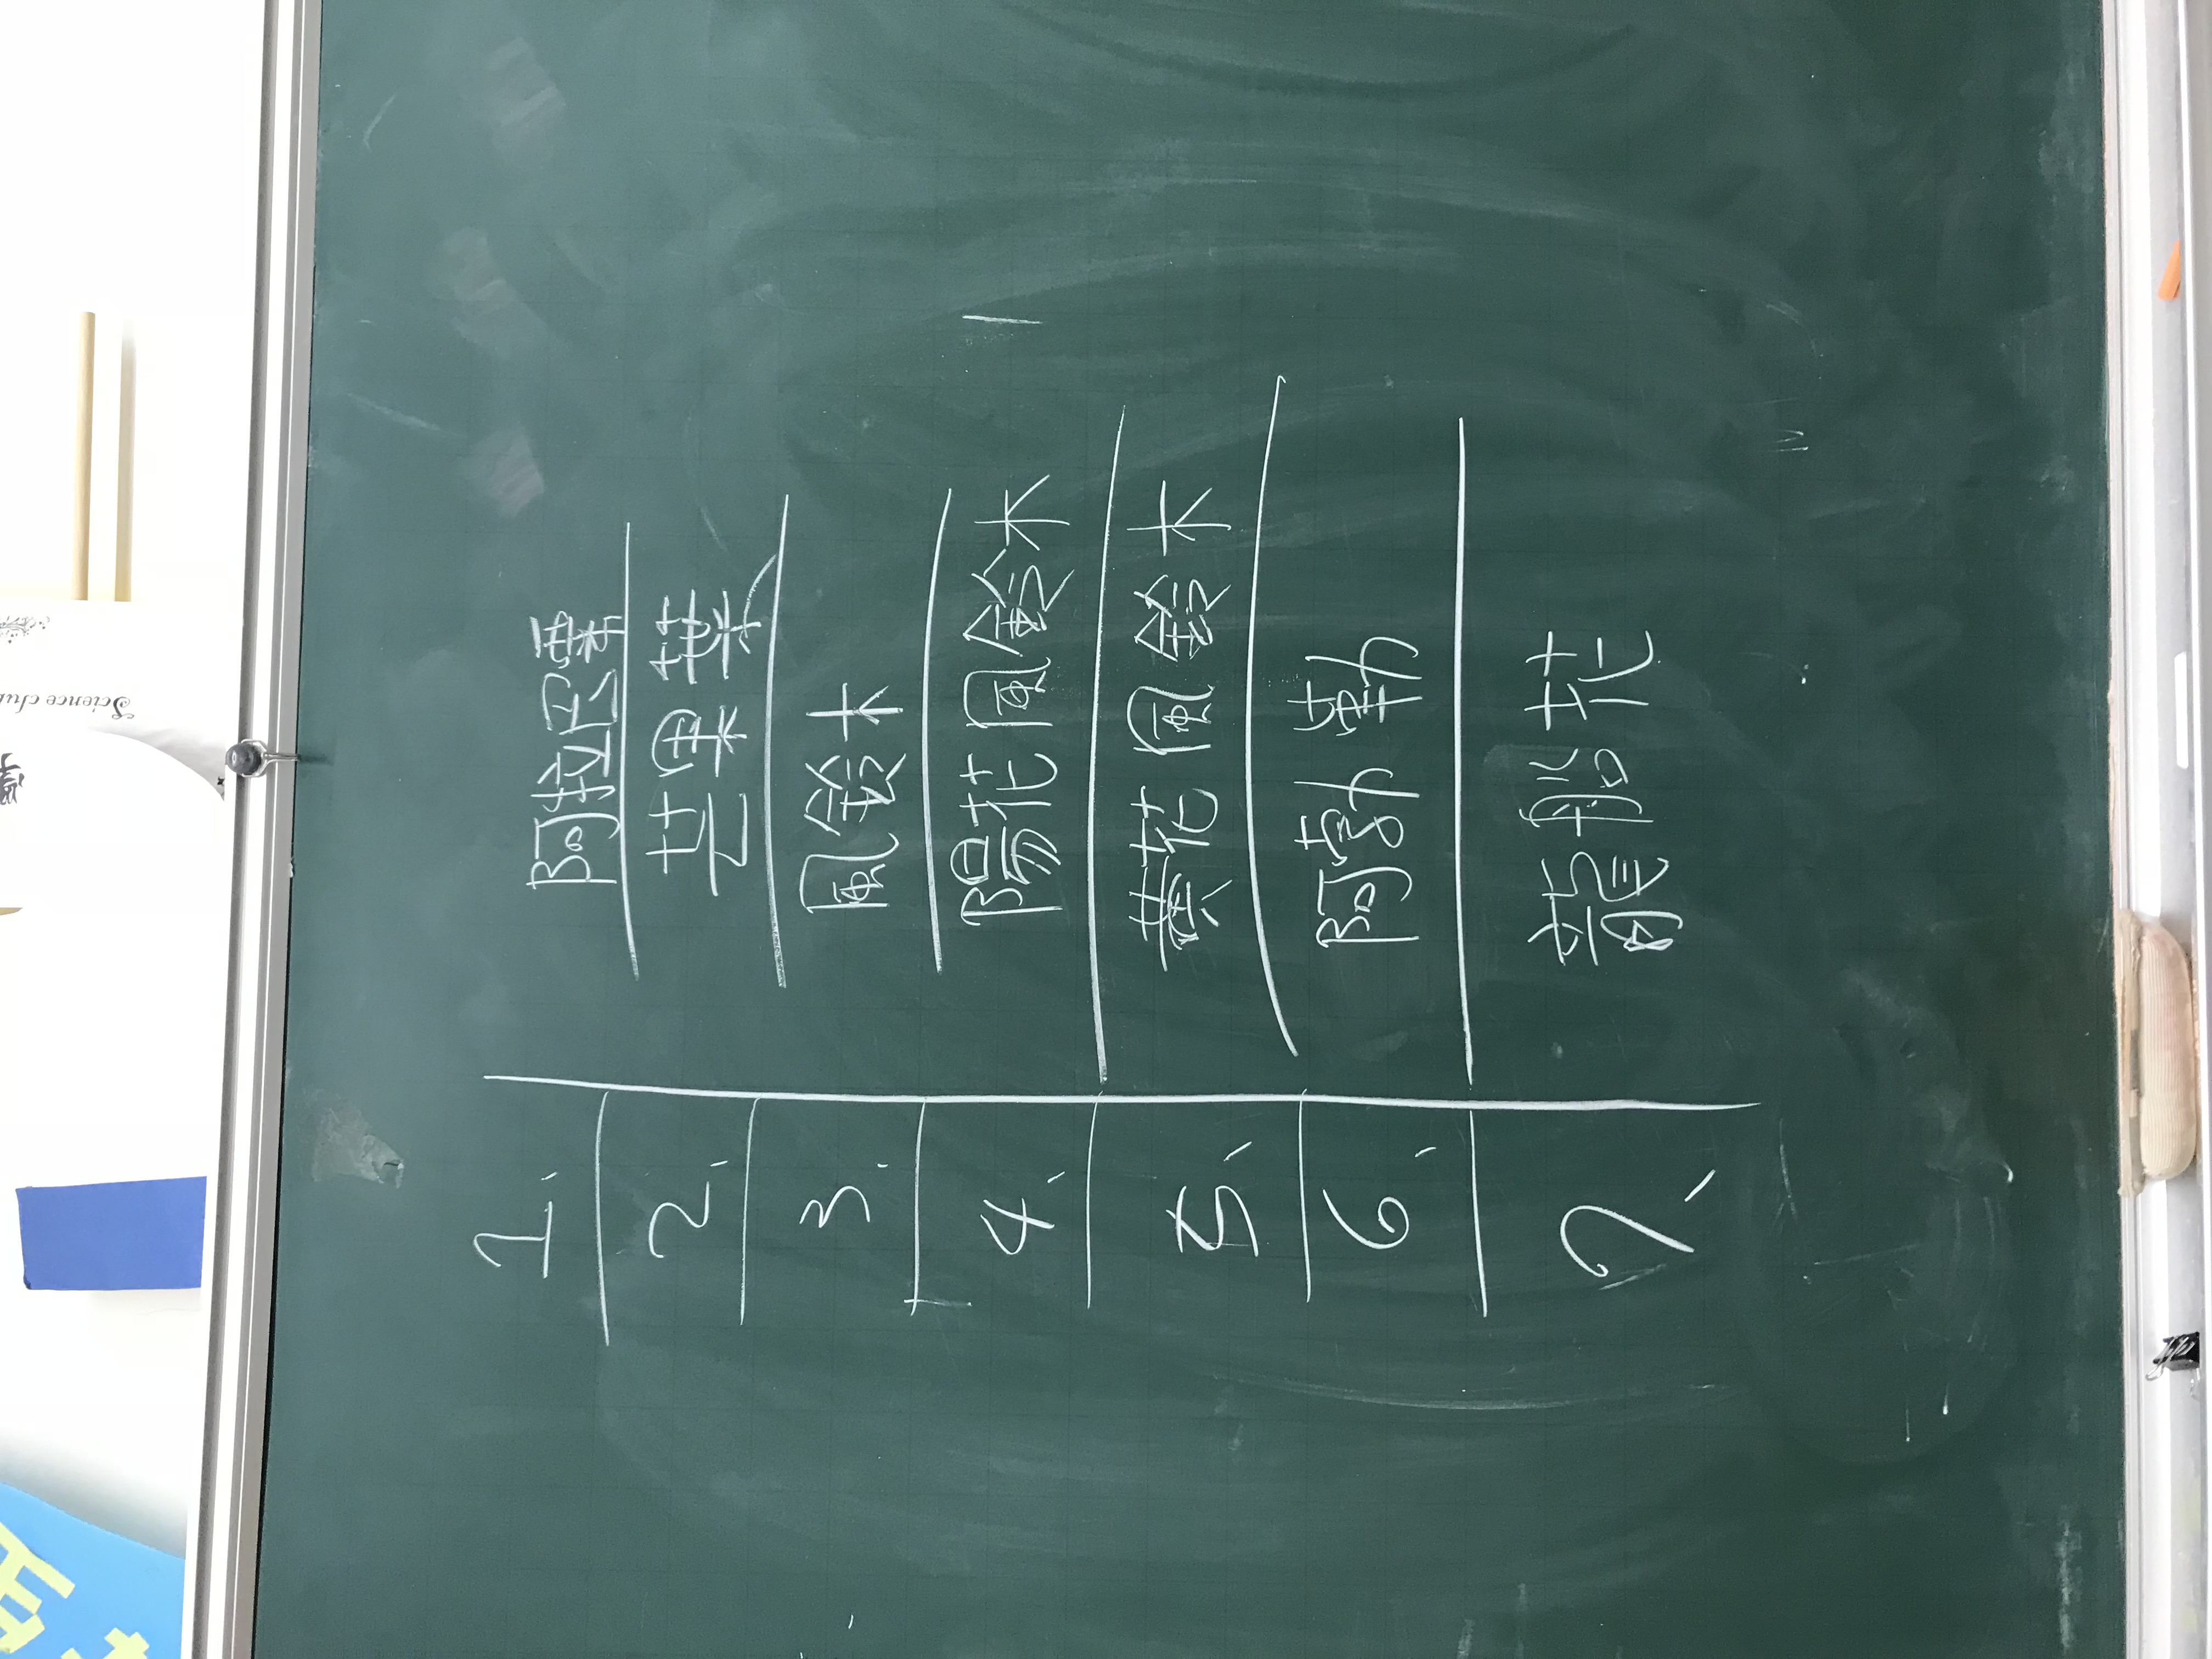 學
Science
1、 阿拉巴栗
2、 芒果葉
3、 風鈴木
4、 陽花風鈴木
5、 黃花風鈴木
6、 阿勃勒
7、 龍船花